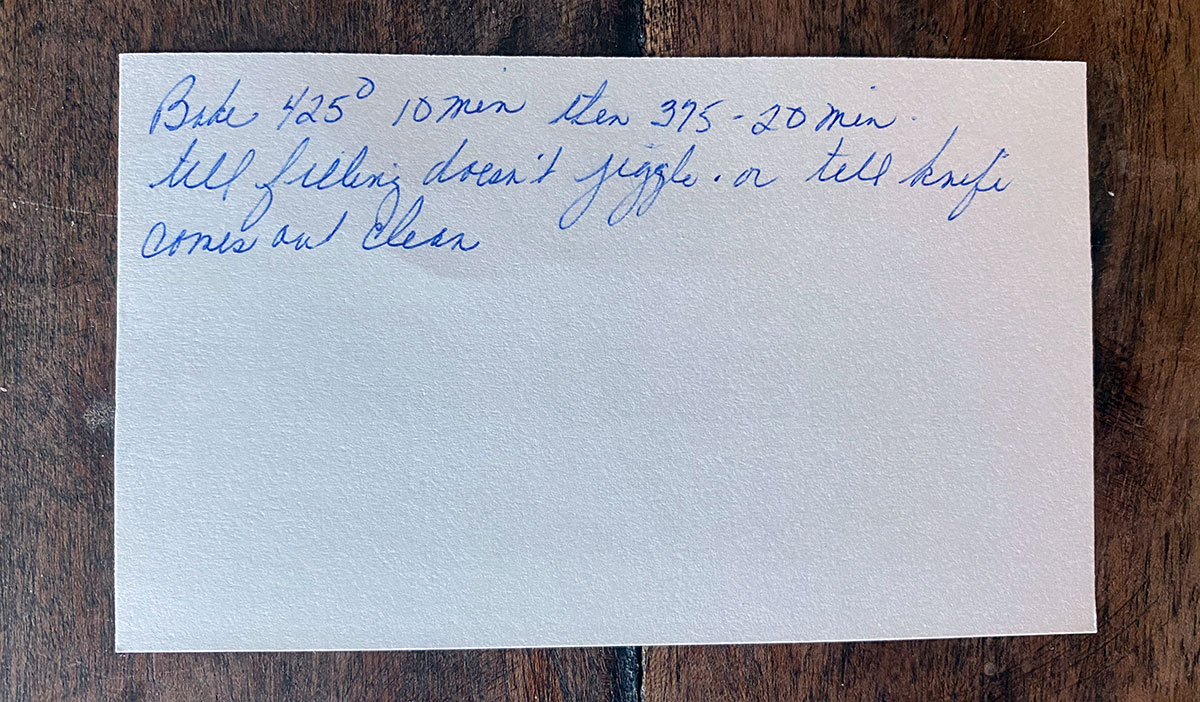 Bake 425° 10 min then 375 - 20 min.
till filling doesn't jiggle. or till knife
comes out clean